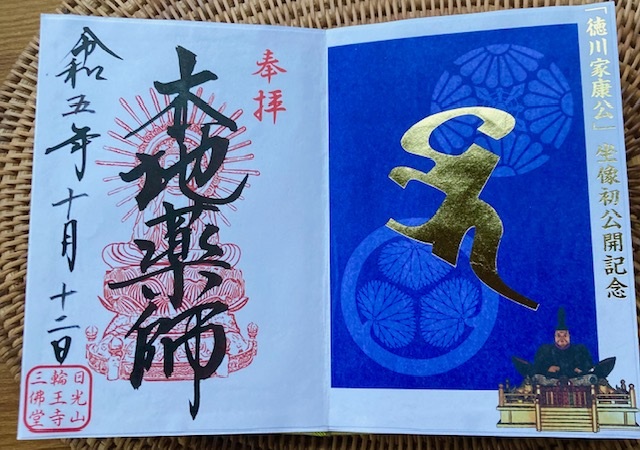 「徳川家康公」坐像初公開記念
奉拝
本地薬師
令和五年十月十二日
日光山
輪王寺
三佛堂